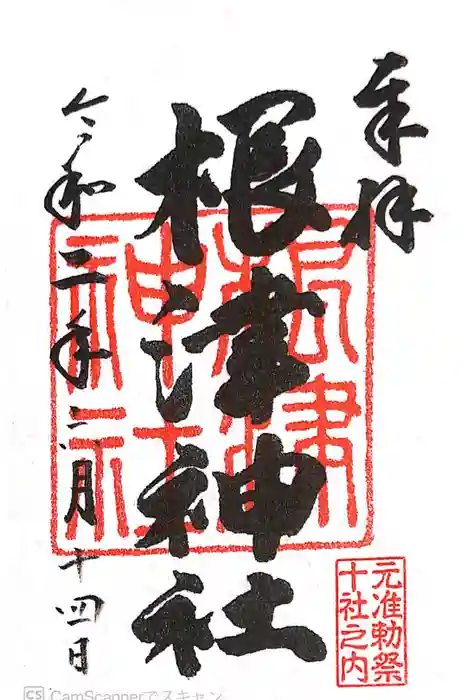 奉拝
根津神社
根津
神社
令和三年二月十四日
元准勅祭
十社之内
CS CamScannerでスキャン